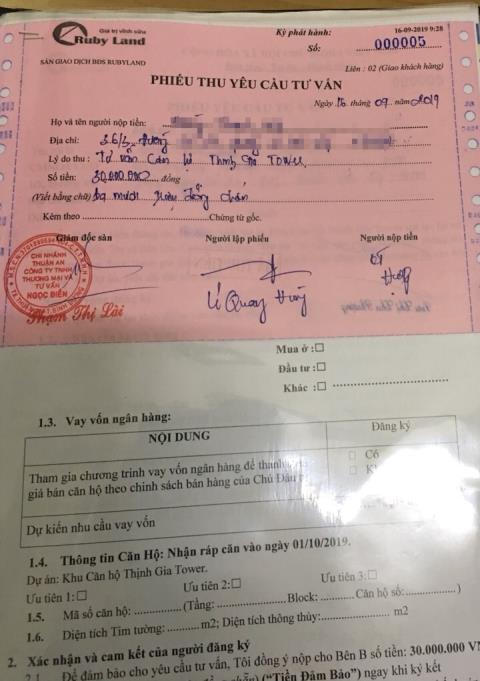 Giá trị vĩnh cửu
Ruby Land
SÀN GIAO DỊCH BĐS RUBYLAND
Kỳ phát hành: 16-09-2019 9:28
Số: 000005
Liên : 02 (Giao khách hàng)
PHIẾU THU YÊU CẦU TƯ VẤN
Ngày 16 tháng 09 năm 2019
Họ và tên người nộp tiền:
Địa chỉ: 36/3 đường
Lý do thu: Tư vấn Căn hộ Thịnh Gia Tower
Số tiền: 30.000.000 đồng
(Viết bằng chữ) Ba mươi triệu đồng chẵn
Kèm theo Chứng từ gốc.
Giám đốc sàn Người lập phiếu Người nộp tiền
CHI NHÁNH
THUẬN AN
CÔNG TY TNHH
THƯƠNG MẠI VÀ
TƯ VẤN
NGỌC BIỂN
Phạm Thị Lài
Quang Hùng
Mua ở :☐
Đầu tư :☐
Khác :☐
1.3. Vay vốn ngân hàng:
NỘI DUNG Đăng ký
Tham gia chương trình vay vốn ngân hàng để thanh ☐ Có
giá bán căn hộ theo chính sách bán hàng của Chủ Đầu ☐
Dự kiến nhu cầu vay vốn
1.4. Thông tin Căn Hộ: Nhận ráp căn vào ngày 01/10/2019.
Dự án: Khu Căn hộ Thịnh Gia Tower.
Ưu tiên 1:☐ Ưu tiên 2:☐ Ưu tiên 3:☐
1.5. Mã số căn hộ: (Tầng: Block: Căn hộ số: )
1.6. Diện tích Tim tường: m2; Diện tích thông thủy: m2
2. Xác nhận và cam kết của người đăng ký
2.1 Để đảm bảo cho yêu cầu tư vấn, Tôi đồng ý nộp cho Bên B số tiền: 30.000.000 VN
("Tiền Đảm Bảo") ngay khi ký kết